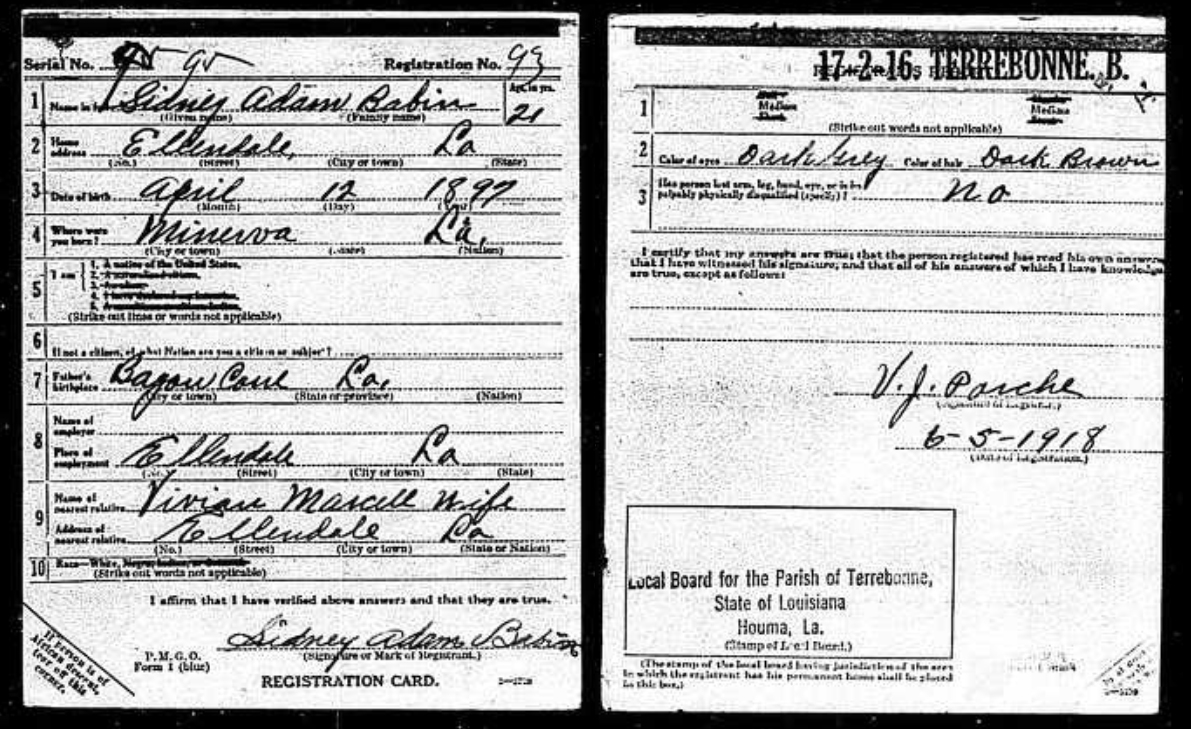 Serial No. 95 Registration No. 93
1 Name in full Sidney Adam Babin Age, in yrs. 21
(Given name) (Family name)
2 Home address Ellendale, La
(No.) (Street) (City or town) (State)
3 Date of birth April 12 1897
(Month) (Day) (Year)
4 Where were you born? Minerva La.
(City or town) (State) (Nation)
5 I am 1. A native of the United States.
2. A naturalized citizen.
3. An alien.
4. I have declared my intention.
5.
(Strike out lines or words not applicable)
6 If not a citizen, of what Nation are you a citizen or subject?
7 Father's birthplace Bayou Cane La.
(City or town) (State or province) (Nation)
8 Name of employer
Place of employment Ellendale La
(No.) (Street) (City or town) (State)
9 Name of nearest relative Vivian Marcell Wife
Address of nearest relative Ellendale La
(No.) (Street) (City or town) (State or Nation)
10 Race—White, Negro, Indian, or Oriental
(Strike out words not applicable)
I affirm that I have verified above answers and that they are true.
Sidney Adam Babin
P. M. G. O.
Form 1 (blue)
(Signature or Mark of Registrant.)
REGISTRATION CARD.
If person is
of African descent,
tear off this
corner.
17-2-16. TERREBONNE. B.
REGISTRAR'S REPORT
1 Tall Medium Short Slender Medium Stout
(Strike out words not applicable)
2 Color of eyes Dark Grey Color of hair Dark Brown
3 Has person lost arm, leg, hand, eye, or is he
palpably physically disqualified (specify)? No
I certify that my answers are true; that the person registered has read his own answers
that I have witnessed his signature; and that all of his answers of which I have knowledge
are true, except as follows:
V. J. Porche
(Signature of Registrar.)
6-5-1918
(Date of Registration.)
Local Board for the Parish of Terrebonne,
State of Louisiana
Houma, La.
(Stamp of Local Board.)
(The stamp of the local board having jurisdiction of the area
in which the registrant has his permanent home shall be placed
in this box.)